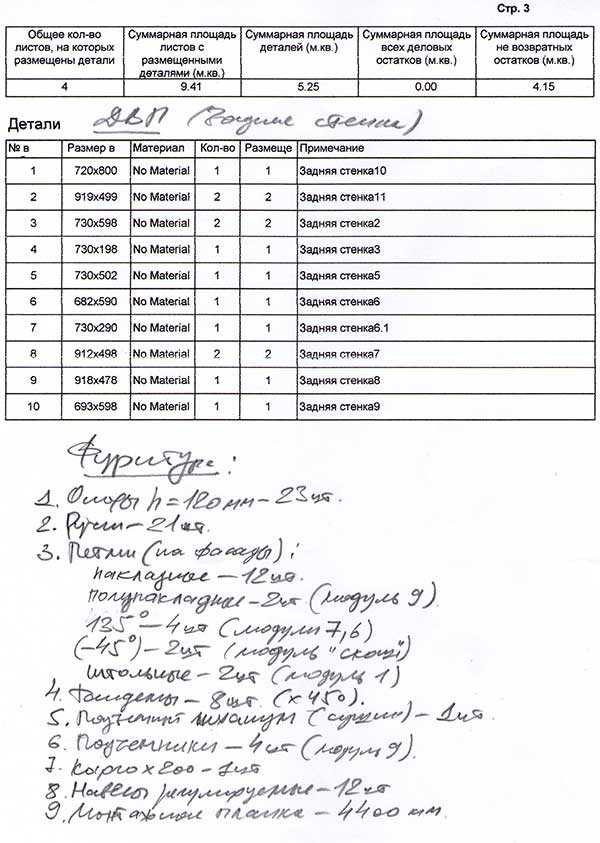 Стр. 3
Общее кол-во листов, на которых размещены детали | Суммарная площадь листов с размещенными деталями (м.кв.) | Суммарная площадь деталей (м.кв.) | Суммарная площадь всех деловых остатков (м.кв.) | Суммарная площадь не возвратных остатков (м.кв.)
4 | 9.41 | 5.25 | 0.00 | 4.15
Детали ДВП (Задние стенка)
№ в | Размер в | Материал | Кол-во | Размеще | Примечание
1 | 720x800 | No Material | 1 | 1 | Задняя стенка10
2 | 919x499 | No Material | 2 | 2 | Задняя стенка11
3 | 730x598 | No Material | 2 | 2 | Задняя стенка2
4 | 730x198 | No Material | 1 | 1 | Задняя стенка3
5 | 730x502 | No Material | 1 | 1 | Задняя стенка5
6 | 682x590 | No Material | 1 | 1 | Задняя стенка6
7 | 730x290 | No Material | 1 | 1 | Задняя стенка6.1
8 | 912x498 | No Material | 2 | 2 | Задняя стенка7
9 | 918x478 | No Material | 1 | 1 | Задняя стенка8
10 | 693x598 | No Material | 1 | 1 | Задняя стенка9
Фурнитура:
1. Опоры h=120мм – 23шт.
2. Ручки – 21шт.
3. Петли (на фасады):
накладные – 12шт.
полунакладные – 2шт (модуль 9).
135° – 4шт (модули 7,6)
(-45°) – 2шт (модуль "скош")
штольные – 2шт (модуль 1)
4. Тандемы – 8шт. (x450).
5. Подъемный механизм (сушки) – 1шт.
6. Подъемники – 4шт (модуль 9).
7. Карго x200 – 1шт
8. Навесы регулируемые – 12шт
9. Монтажная планка – 4400мм.